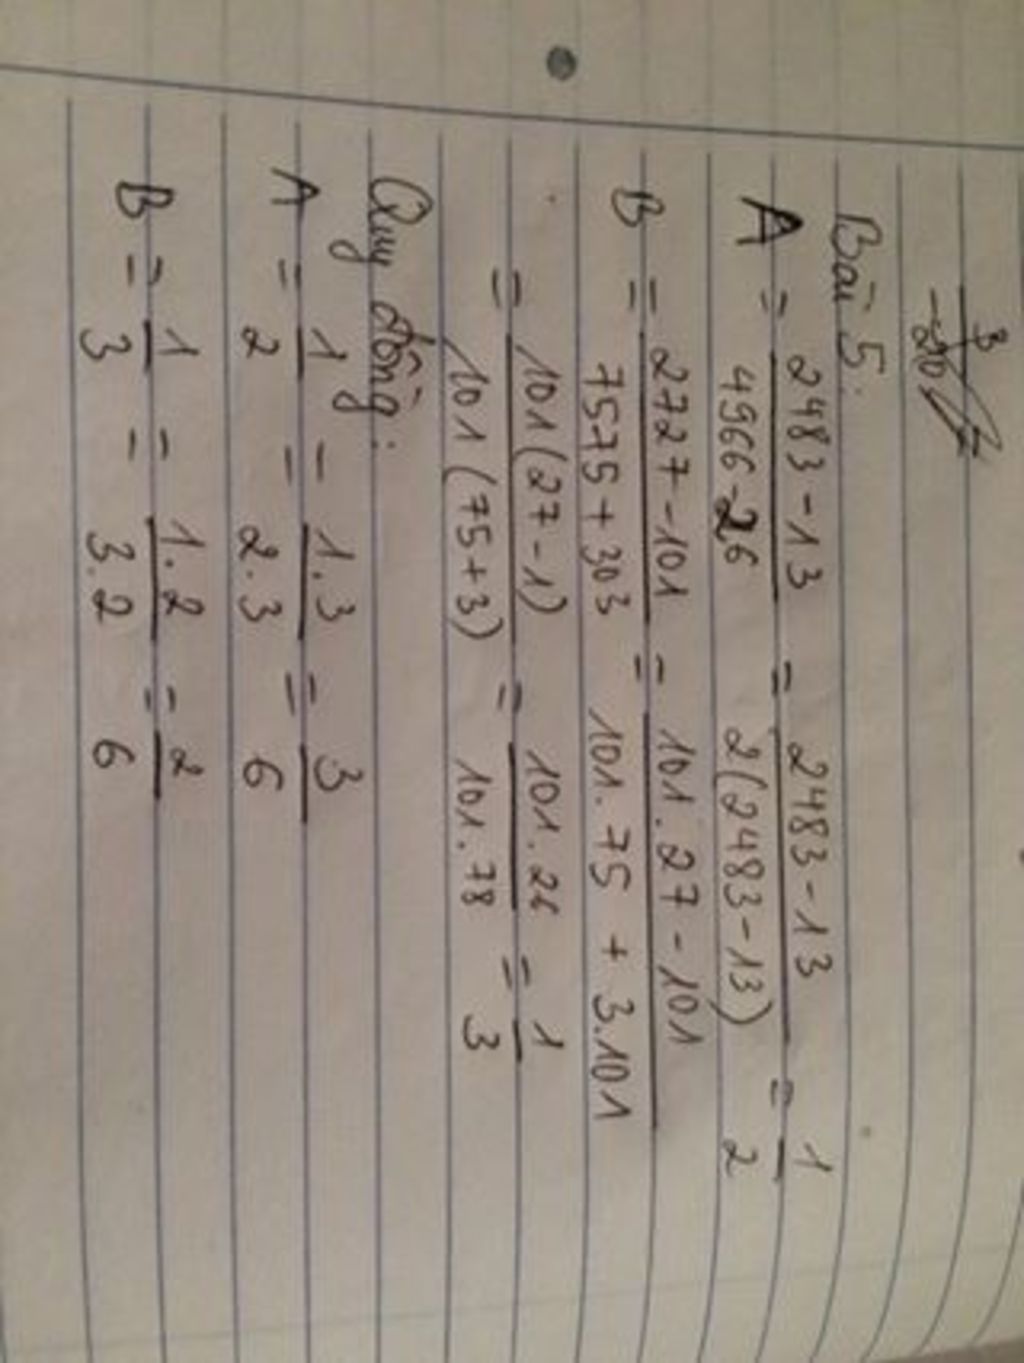 3
-20
Bài 5:
A = 2483-13 / 4966-26 = 2483-13 / 2(2483-13) = 1/2
B = 2727-101 / 7575+303 = 101.27-101 / 101.75 + 3.101
= 101(27-1) / 101(75+3) = 101.26 / 101.78 = 1/3
Quy đồng:
A = 1/2 = 1.3/2.3 = 3/6
B = 1/3 = 1.2/3.2 = 2/6